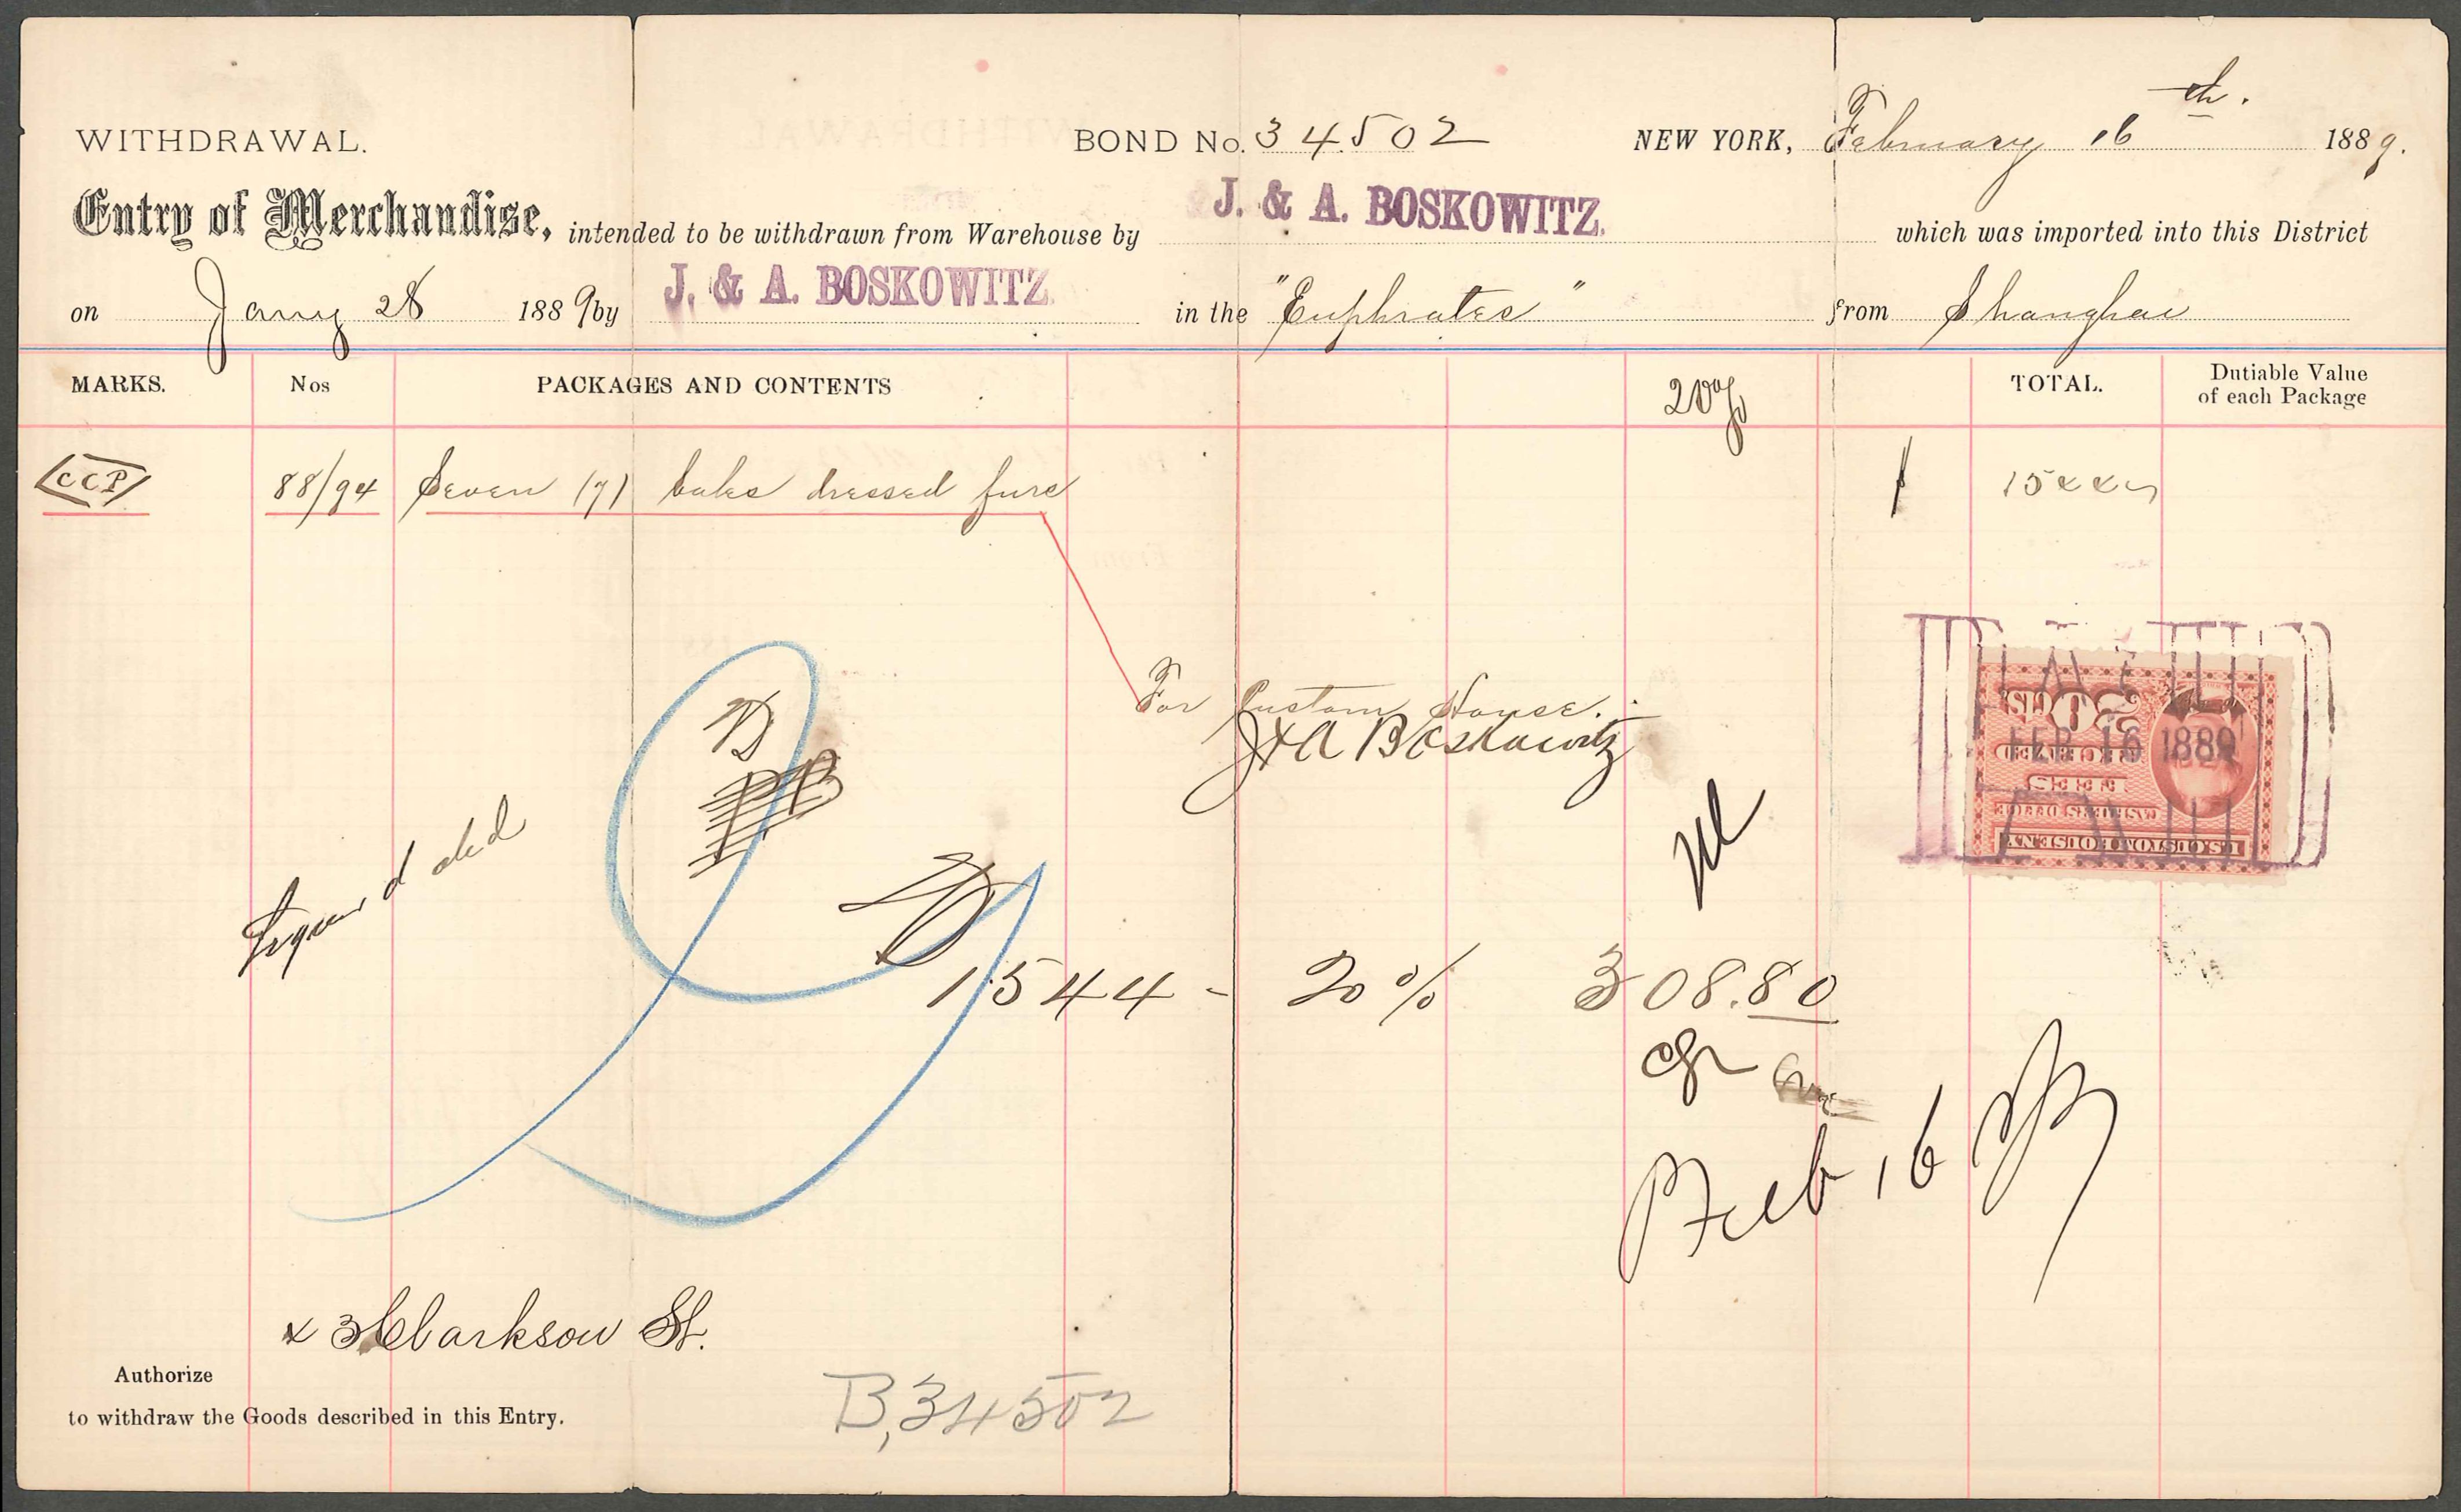 WITHDRAWAL. BOND No. 34502 NEW YORK, February 16th. 1889.
Entry of Merchandise, intended to be withdrawn from Warehouse by J. & A. BOSKOWITZ. which was imported into this District
on Jany 28 1889 by J. & A. BOSKOWITZ. in the "Euphrates" from Shanghae
MARKS. Nos PACKAGES AND CONTENTS 20% TOTAL. Dutiable Value of each Package
CCP 88/94 Seven (7) bales dressed furs $ 1544
For Custom House.
J & A Boskowitz
20 CTS.
RECEIVED
FEES
CASHIERS OFFICE
U.S. CUSTOM HOUSE N.Y.
PAID
FEB 16 1889
1544 - 20% 308.80
Feb 16
x 3 Clarkson St.
Authorize
to withdraw the Goods described in this Entry.
B, 34502